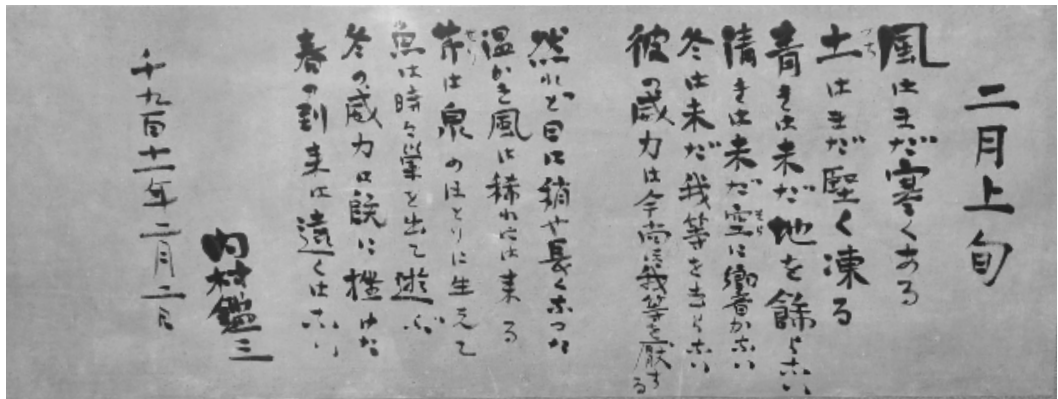 二月上旬
風はまだ寒くある
土はまだ堅く凍る
青きは未だ地を飾らない
清きは未だ空に響かない
冬は未だ我等を去らない
彼の威力は今尚ほ我等を圧する
然れど日は稍や長くなつた
温かき風は稀には来る
芹は泉のほとりに生えて
魚は時々巣を出て遊ぶ
冬の威力は既に挫けた
春の到来は遠くはない
内村鑑三
千九百十一年二月二日